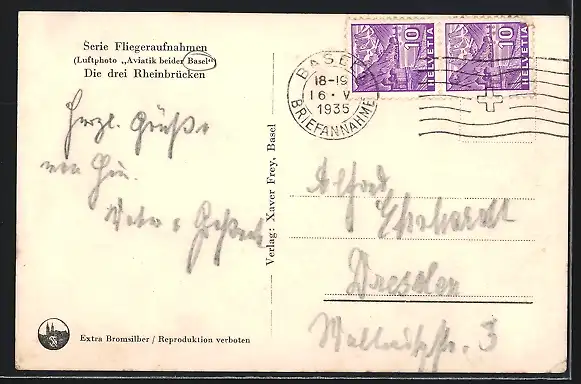 Serie Fliegeraufnahmen
(Luftphoto „Aviatik beider Basel")
Die drei Rheinbrücken
Herzl. Grüße
von
Verlag: Xaver Frey, Basel
Extra Bromsilber / Reproduktion verboten
BASEL
18-19
16·V
1935
BRIEFANNAHME
10
HELVETIA
10
HELVETIA
Alfred
Ehrhardt
Dresden
3